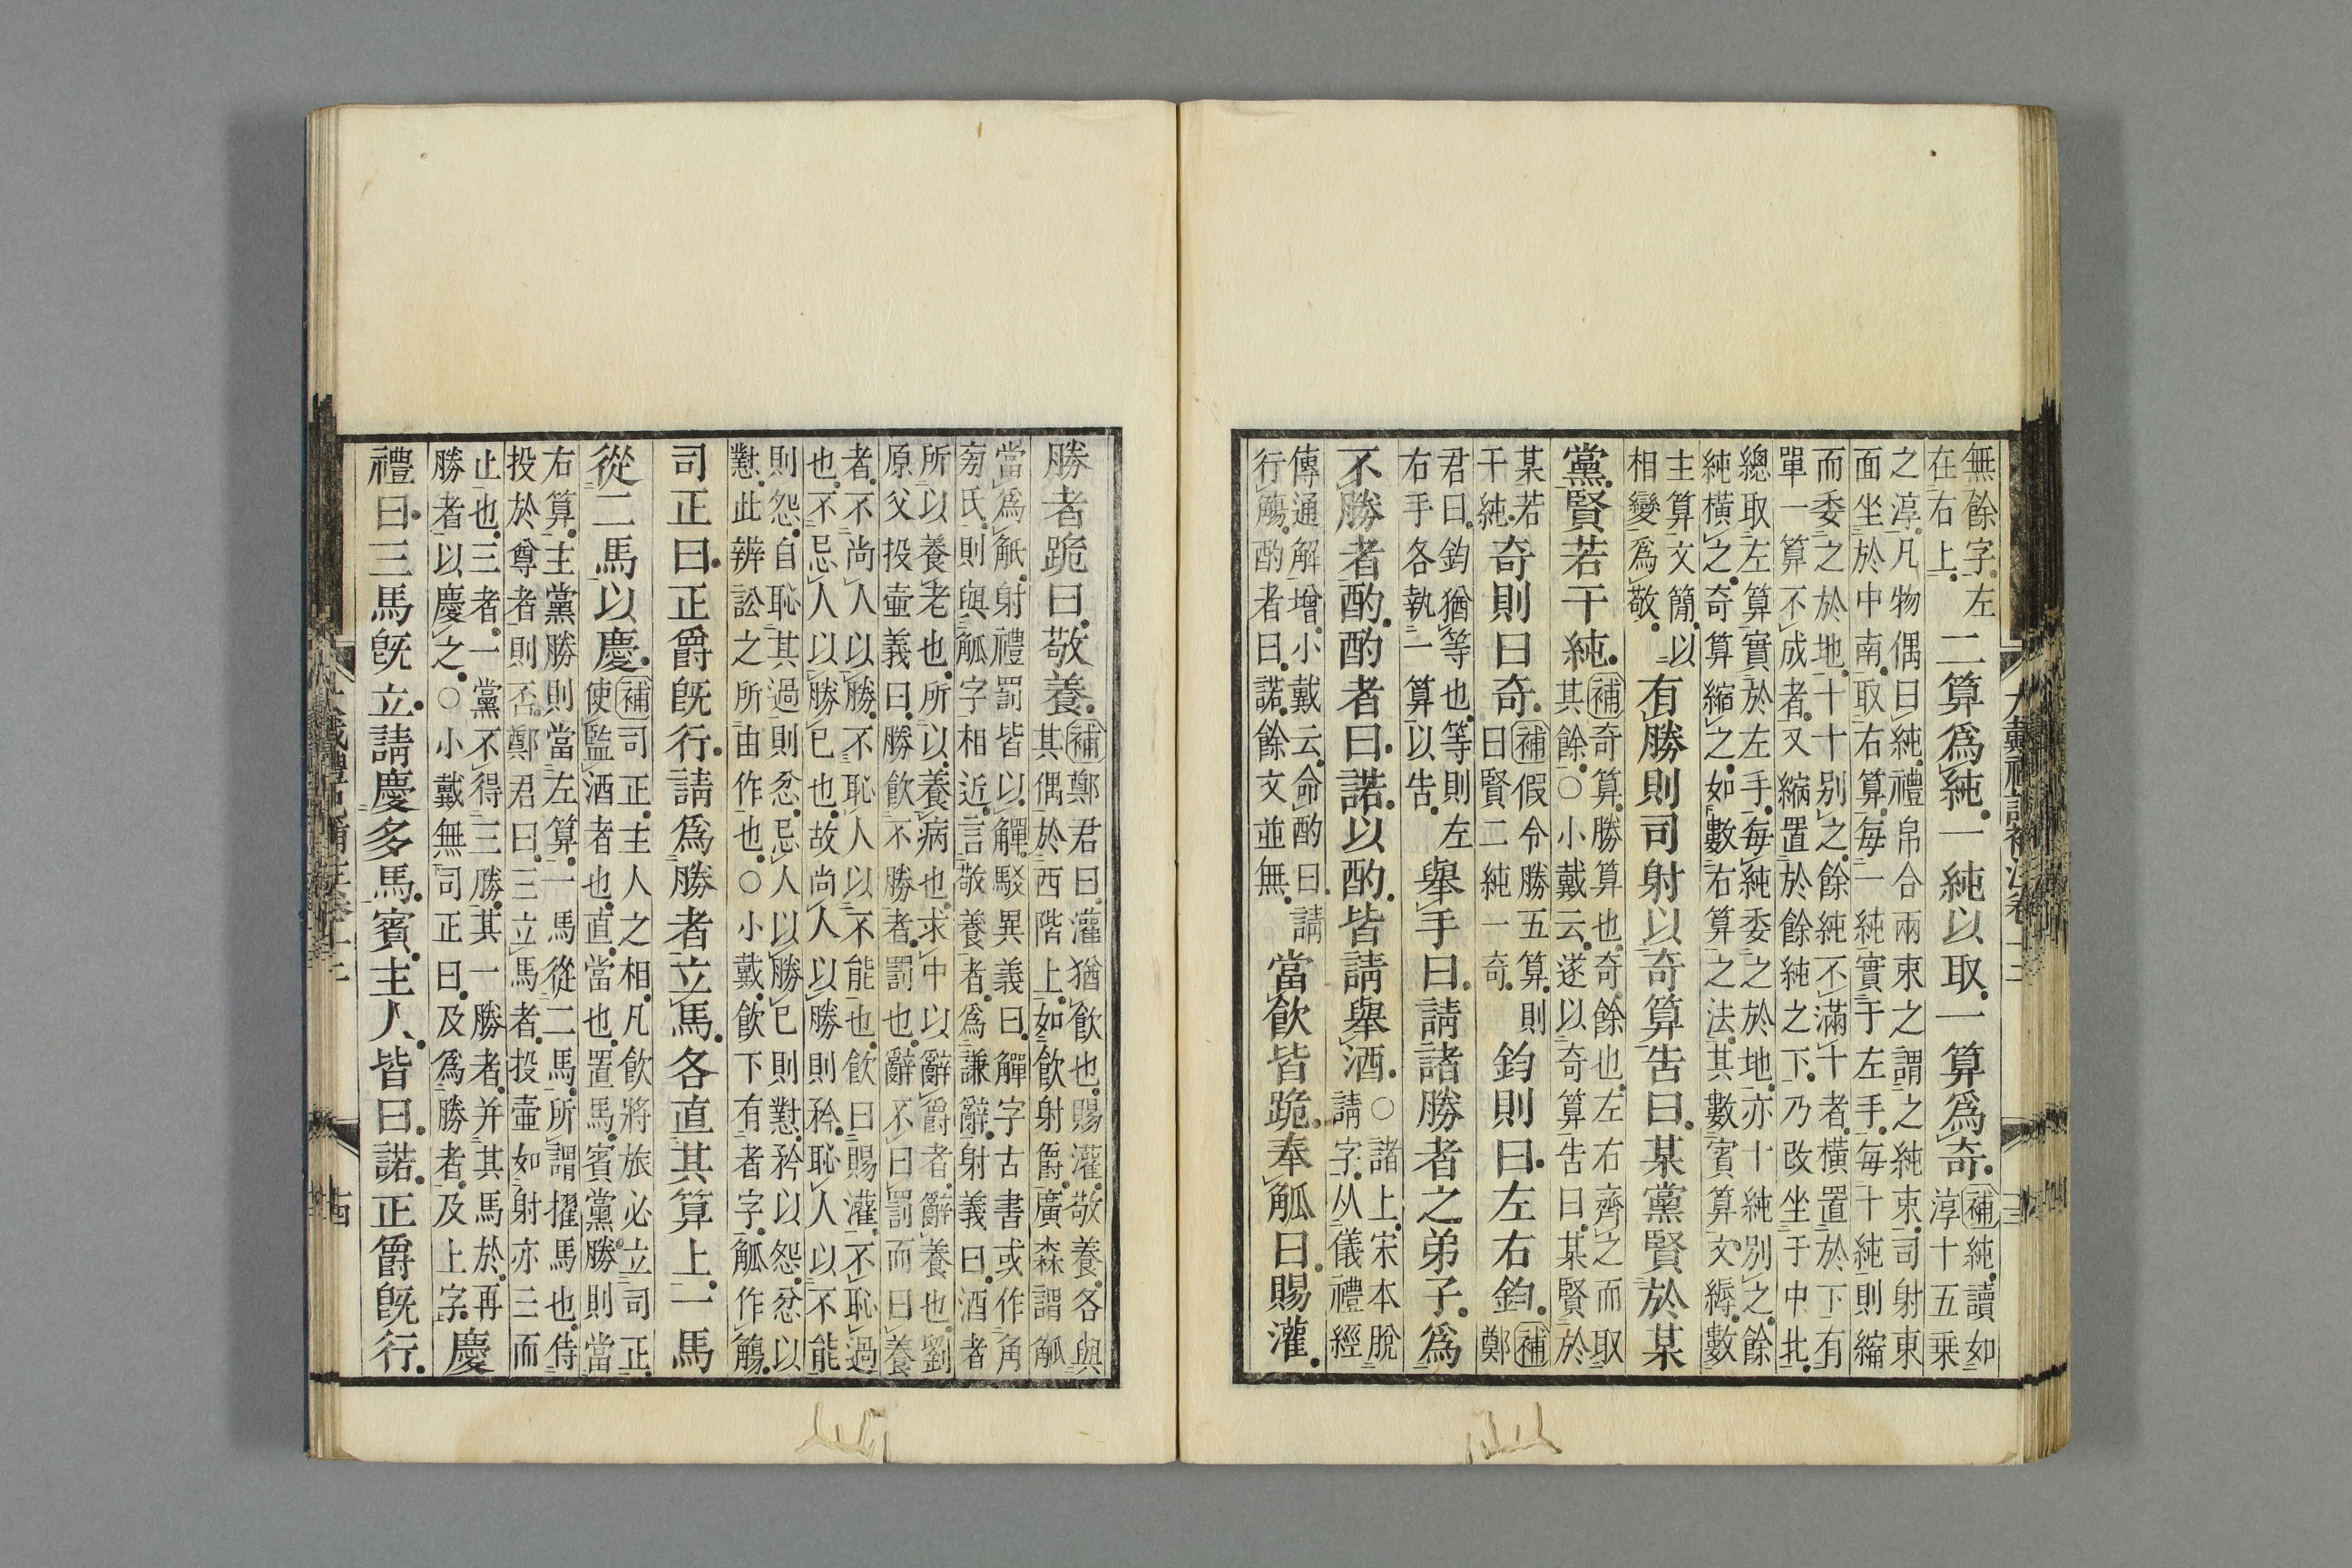 無餘字左在右上二算爲純一純以取一算爲奇補純讀如淳十五乗
之淳凡物偶曰純禮帛合兩束之謂之純束司射東
面坐於中南取右算每一純實于左手每十純則縮
而委之於地十十别之餘純不滿十者橫置於下有
單一算不成者又縮置於餘純之下乃改坐于中北
總取左算實於左手每純委之於地亦十純別之餘
純橫之奇算縮之如數右算之法其數賓算文縟數
主算文簡以相變爲敬有勝則司射以奇算告曰某黨賢於某
黨賢若干純補奇算勝算也奇餘也左右齊之而取其餘○小戴云遂以奇算告曰某賢於
某若干純奇則曰奇補假令勝五算則曰賢二純一奇鈞則曰左右鈞補鄭
君曰鈞猶等也等則左右手各執一算以告舉手曰請諸勝者之弟子爲
不勝者酌酌者曰諾以酌皆請舉酒○諸上宋本脫請字从儀禮經
傳通解增小戴云命酌曰請行觴酌者曰諾餘文並無當飲皆跪奉觚曰賜灌
勝者跪曰敬養補鄭君曰灌猶飲也賜灌敬養各與其偶於西階上如飲射爵廣森謂觚
當爲觗射禮罰皆以觶駁異義曰觶字古書或作角
旁氏則與觚字相近言敬養者爲謙辭射義曰酒者
所以養老也所以養病也求中以辭爵者辭養也劉
原父投壷義曰勝飲不勝者罰也辭不曰罰而曰養
者不尚人以勝不恥人以不能也飲曰賜灌不恥過
也不忌人以勝已也故尚人以勝則矜恥人以不能
則怨自恥其過則忿忌人以勝已則懟矜以怨忿以
懟此辨訟之所由作也○小戴飲下有者字觚作觴
司正曰正爵既行請爲勝者立馬各直其算上一馬
從二馬以慶補司正主人之相凡飲將旅必立司正使監酒者也直當也置馬賓黨勝則當
右算主黨勝則當左算一馬從二馬所謂擢馬也侍
投於尊者則否鄭君曰三立馬者投壷如射亦三而
止也三者一黨不得三勝其一勝者并其馬於再
勝者以慶之○小戴無司正曰及爲勝者及上字慶
禮曰三馬既立請慶多馬賓主人皆曰諾正爵既行